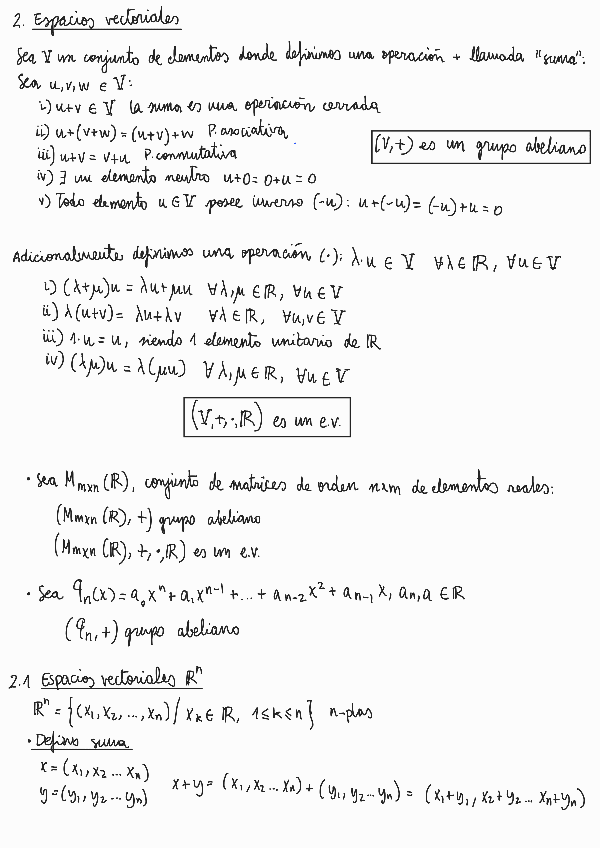 2. Espacios vectoriales
Sea V un conjunto de elementos donde definimos una operación + llamada "suma".
Sea u,v,w ∈ V:
i) u+v ∈ V la suma es una operación cerrada
ii) u+(v+w) = (u+v)+w P. asociativa
iii) u+v = v+u P. conmutativa
(V,+) es un grupo abeliano
iv) ∃ un elemento neutro u+0=0+u=0
v) Todo elemento u ∈ V posee inverso (-u): u+(-u) = (-u)+u = 0
Adicionalmente definimos una operación (·): λ·u ∈ V ∀λ∈ℝ, ∀u∈V
i) (λ+μ)u = λu+μu ∀λ,μ ∈ℝ, ∀u∈V
ii) λ(u+v) = λu+λv ∀λ∈ℝ, ∀u,v∈V
iii) 1·u = u, siendo 1 elemento unitario de ℝ
iv) (λμ)u = λ(μu) ∀λ,μ∈ℝ, ∀u∈V
(V,+,·,ℝ) es un e.v.
· Sea Mmxn(ℝ), conjunto de matrices de orden nxm de elementos reales:
(Mmxn(ℝ),+) grupo abeliano
(Mmxn(ℝ),+,·,ℝ) es un e.v.
· Sea qₙ(x) = a₀xⁿ + a₁xⁿ⁻¹ + ... + aₙ₋₂x² + aₙ₋₁x, aₙ,a ∈ℝ
(qₙ,+) grupo abeliano
2.1 Espacios vectoriales ℝⁿ
ℝⁿ = {(x₁,x₂,...,xₙ) / xₖ∈ℝ, 1≤k≤n} n-plas
· Defino suma
x = (x₁,x₂...xₙ)
y = (y₁,y₂...yₙ)
x+y = (x₁,x₂...xₙ)+(y₁,y₂...yₙ) = (x₁+y₁,x₂+y₂...xₙ+yₙ)